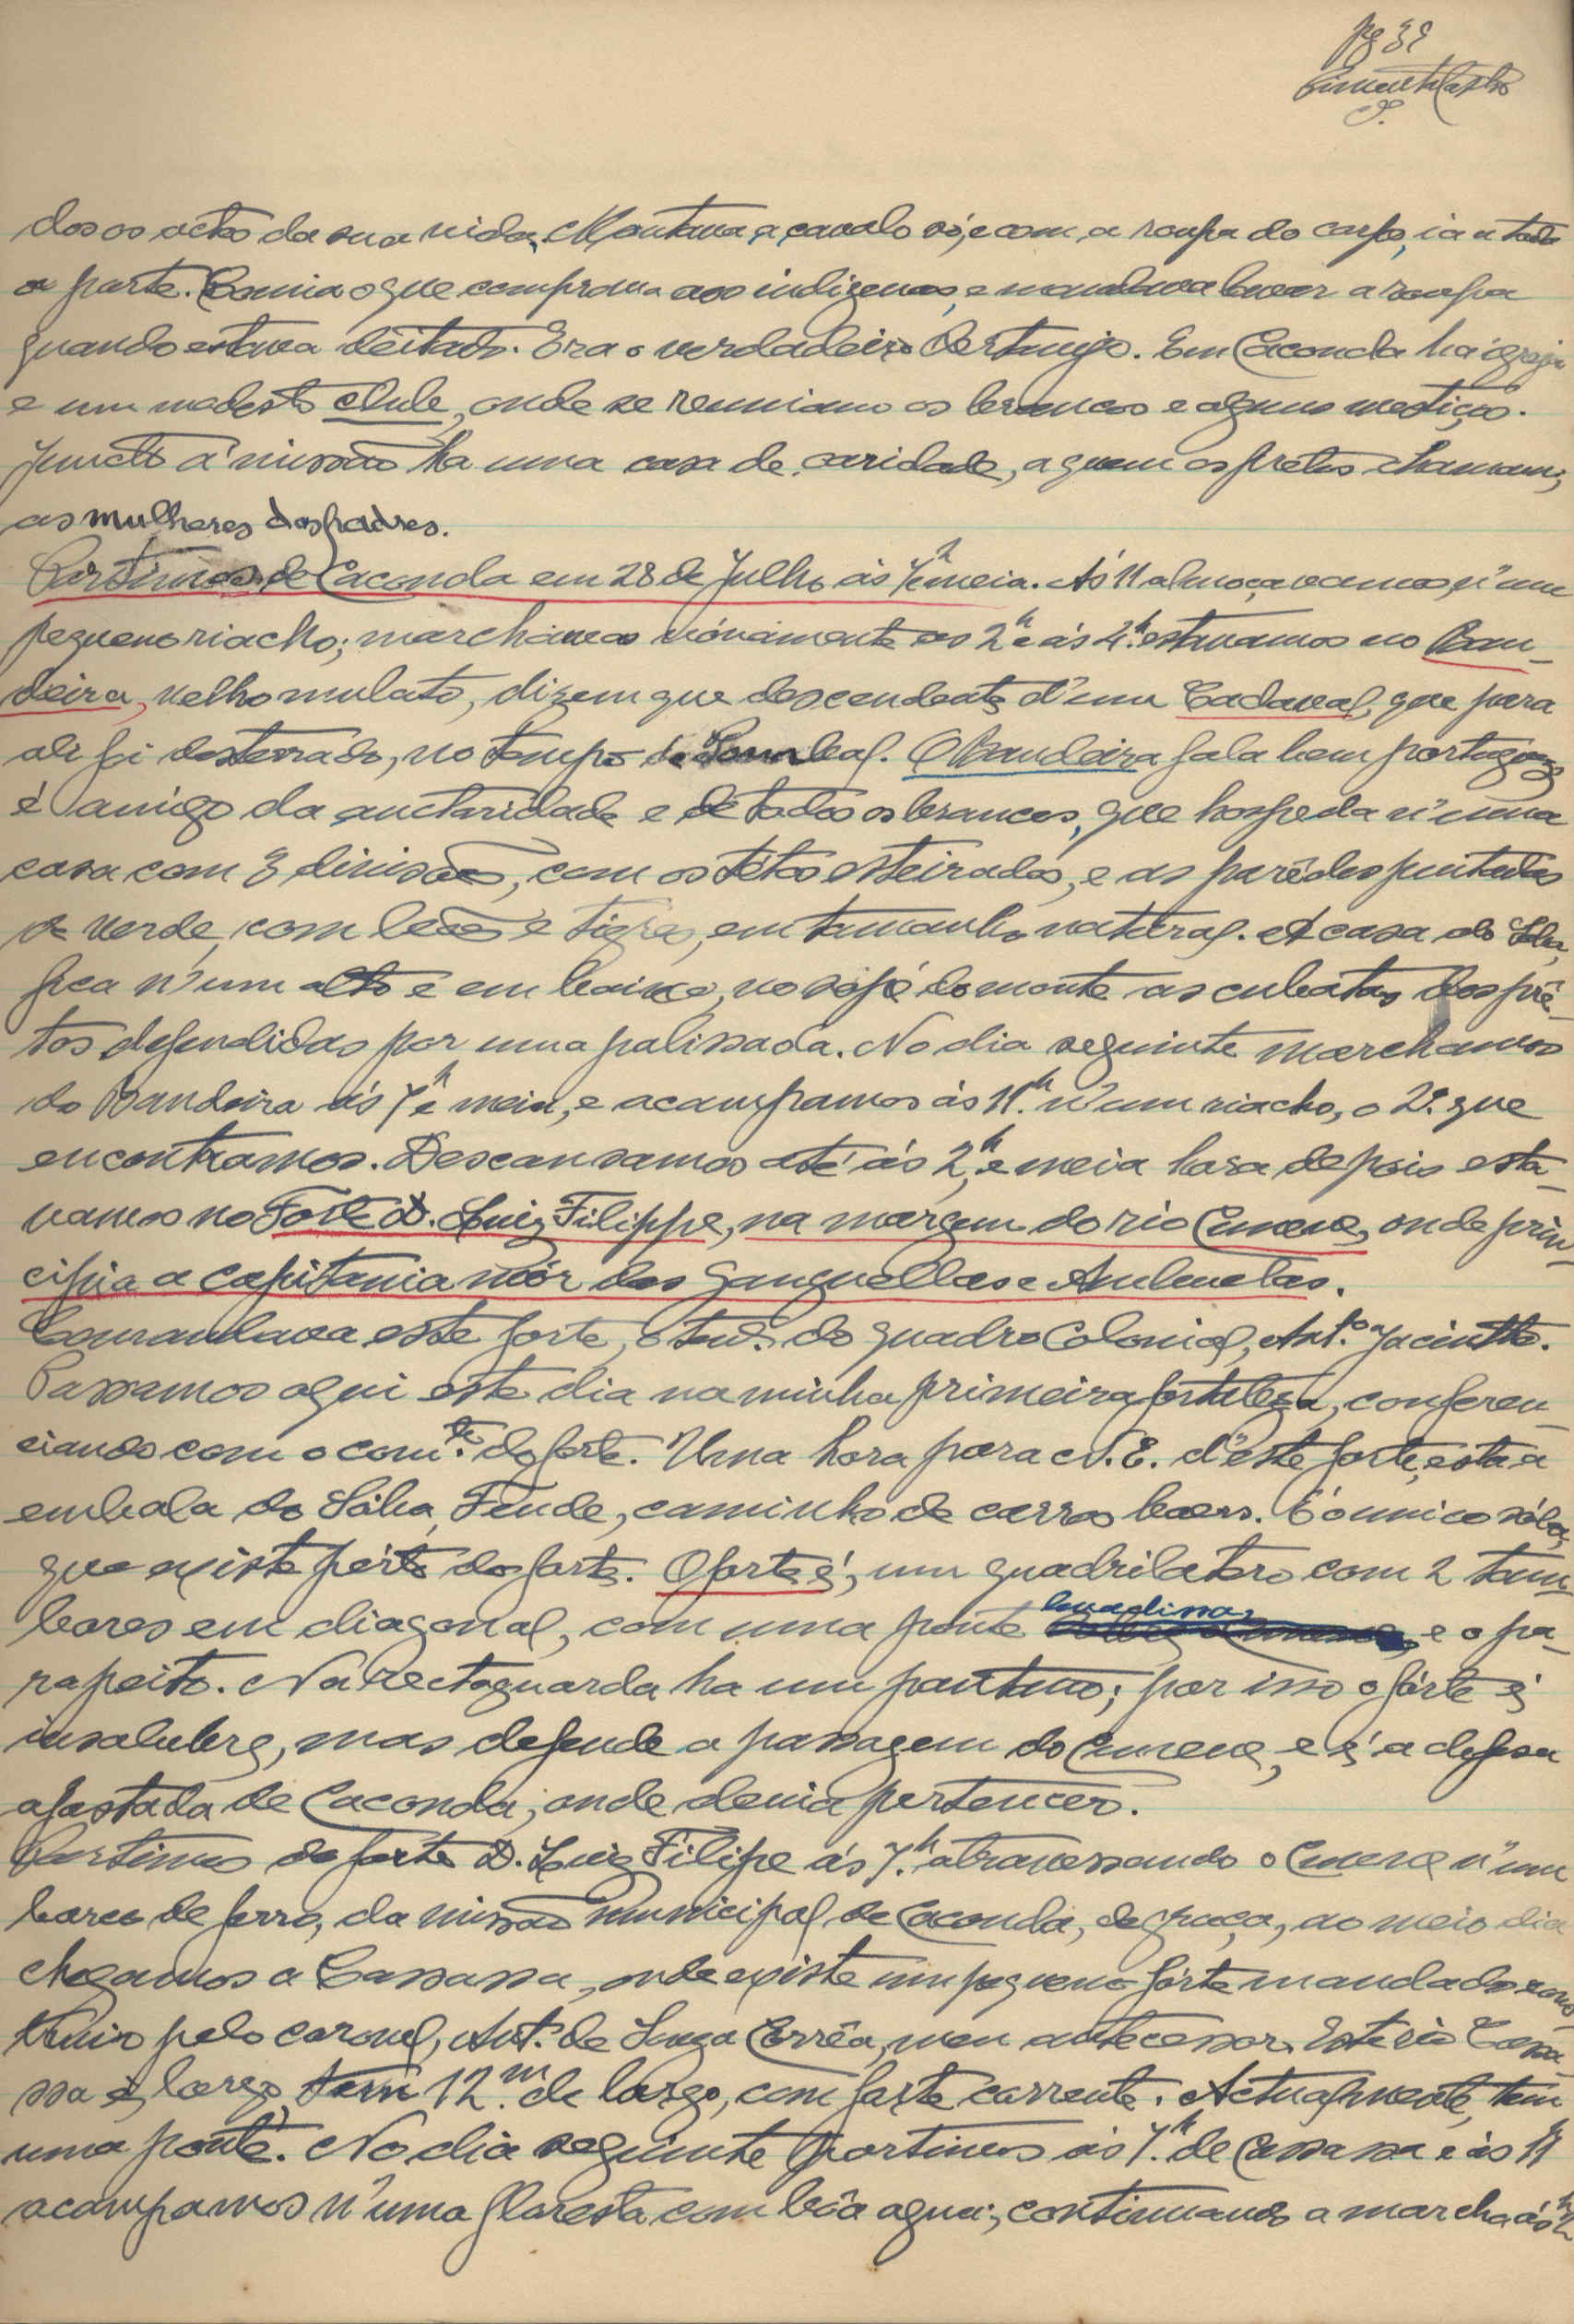 pg 32
dos os actos da sua vida. Montava a cavalo só, e com a roupa do corpo, ia a toda
a parte. Comia o que comprava aos indigenas, e mandava lavar a roupa
quando estava deitado. Era o verdadeiro Portuguez. Em Caconda ha igreja
e um modesto club, onde se reuniam os brancos e alguns mestiços.
Juncto á missão ha uma casa de caridade, a quem os pretos chamam;
as mulheres dos padres.
Partimos de Caconda em 28 de Julho ás 7 h e meia. Ás 11 almoçavamos n'um
pequeno riacho; marchávamos nóvamente ás 2h e ás 4h. estavamos no Ban-
deira, velho mulato, dizem que descendente d'um Cadaval, que para
ali foi desterrado, no tempo de Pombal. O Bandeira fala bem portuguez
é amigo da auctoridade e de todos os brancos, que hospeda n'uma
casa com 3 divisões, com os tétos esteirados, e as parêdes pintadas
de verde, com leões e tigres, em tamanho natural. A casa do Soba,
fica n'um alto e em baixo, no sopé do monte as cubatas dos prê-
tos defendidas por uma palissada. No dia seguinte marchamos
do Bandeira ás 7h e meia, e acampamos ás 11h. n'um riacho, o 2º. que
encontramos. Descansamos até ás 2h, e meia hora depois esta-
vamos no Forte D. Luiz Filippe, na margem do rio Cunene, onde prin-
cipia a capitania mór dos Ganguellas e Ambuelas.
Comandava este forte, o ten.e do quadro Colonial, Ant.o Jacintho.
Passamos aqui este dia na minha primeira fortaleza, conferen-
ciando com o com.te do forte. Uma hora para N. E. d'este forte, está a
embala do Sóba, Fende, caminho de carros boers. É o unico sóba,
que existe pérto do forte. O forte é, um quadrilatero com 2 tam-
bores em diagonal, com uma ponte levadissa, e o pa-
rapeito. Na rectaguarda ha um pantano; por isso o fórte é
insalubre, mas defende a passagem do Cunene, e é a defesa
afastada de Caconda, onde devia pertencer.
Partimos do forte D. Luiz Filipe ás 7.h atravessando o Cunene n'um
barco de ferro, da missão municipal de Caconda, de graça, ao meio dia
chegamos a Cassassa, onde existe um pequeno fórte mandado cons-
truir pelo coronel, Ant.o de Souza Corrêa, meu antecessor. Este rio Cassa-
ssa é largo, tem 12.m de largo, com forte corrente. Actualmente, tem
uma ponte. No dia seguinte partimos ás 7.h de Cassassa e ás 11
acampamos n'uma floresta com bôa agua; continuando a marcha ás 2h